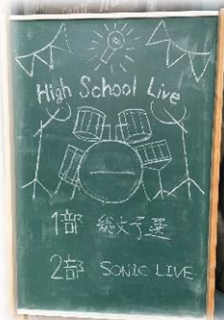 High School Live
1部 総文予選
2部 SONIC LIVE